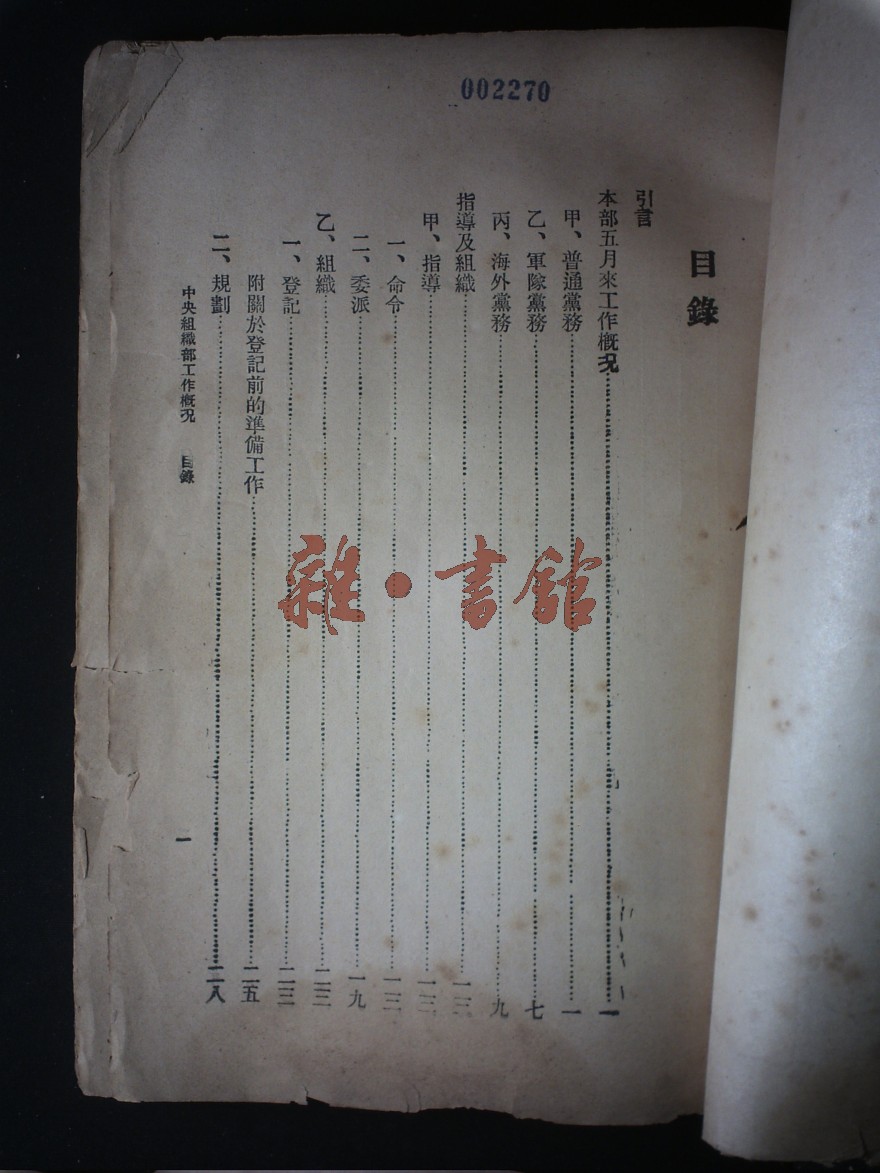 002270
目錄
引言
本部五月來工作概況……一
甲、普通黨務……一
乙、軍隊黨務……七
丙、海外黨務……九
指導及組織……一三
甲、指導……一三
一、命令……一三
二、委派……一九
乙、組織……二三
一、登記……二三
附關於登記前的準備工作……二五
二、規劃……二八
中央組織部工作概況 目錄
一
雜·書館